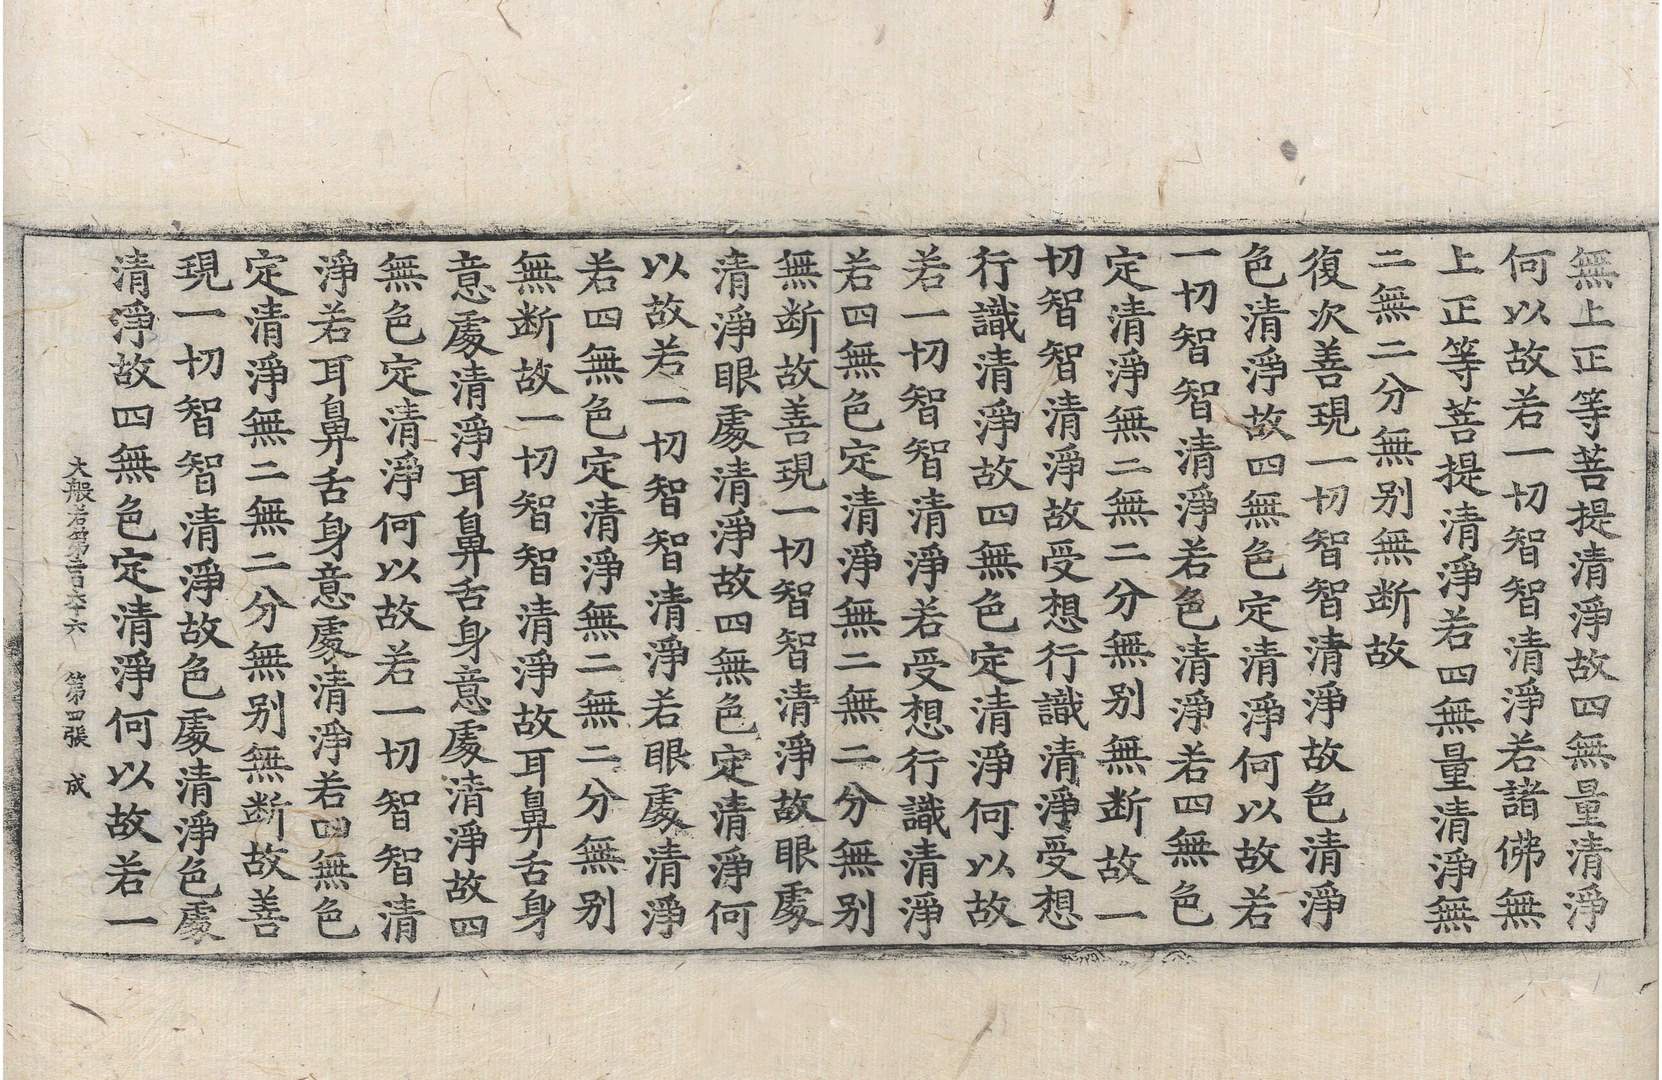 無上正等菩提清淨故四無量清淨
何以故若一切智智清淨若諸佛無
上正等菩提清淨若四無量清淨無
二無二分無别無断故
復次善現一切智智清淨故色清淨
色清淨故四無色定清淨何以故若
一切智智清淨若色清淨若四無色
定清淨無二無二分無别無断故一
切智智清淨故受想行識清淨受想
行識清淨故四無色定清淨何以故
若一切智智清淨若受想行識清淨
若四無色定清淨無二無二分無别
無断故善現一切智智清淨故眼處
清淨眼處清淨故四無色定清淨何
以故若一切智智清淨若眼處清淨
若四無色定清淨無二無二分無别
無断故一切智智清淨故耳鼻舌身
意處清淨耳鼻舌身意處清淨故四
無色定清淨何以故若一切智智清
淨若耳鼻舌身意處清淨若四無色
定清淨無二無二分無别無断故善
現一切智智清淨故色處清淨色處
清淨故四無色定清淨何以故若一
大般若第二百六十六 第四張 成